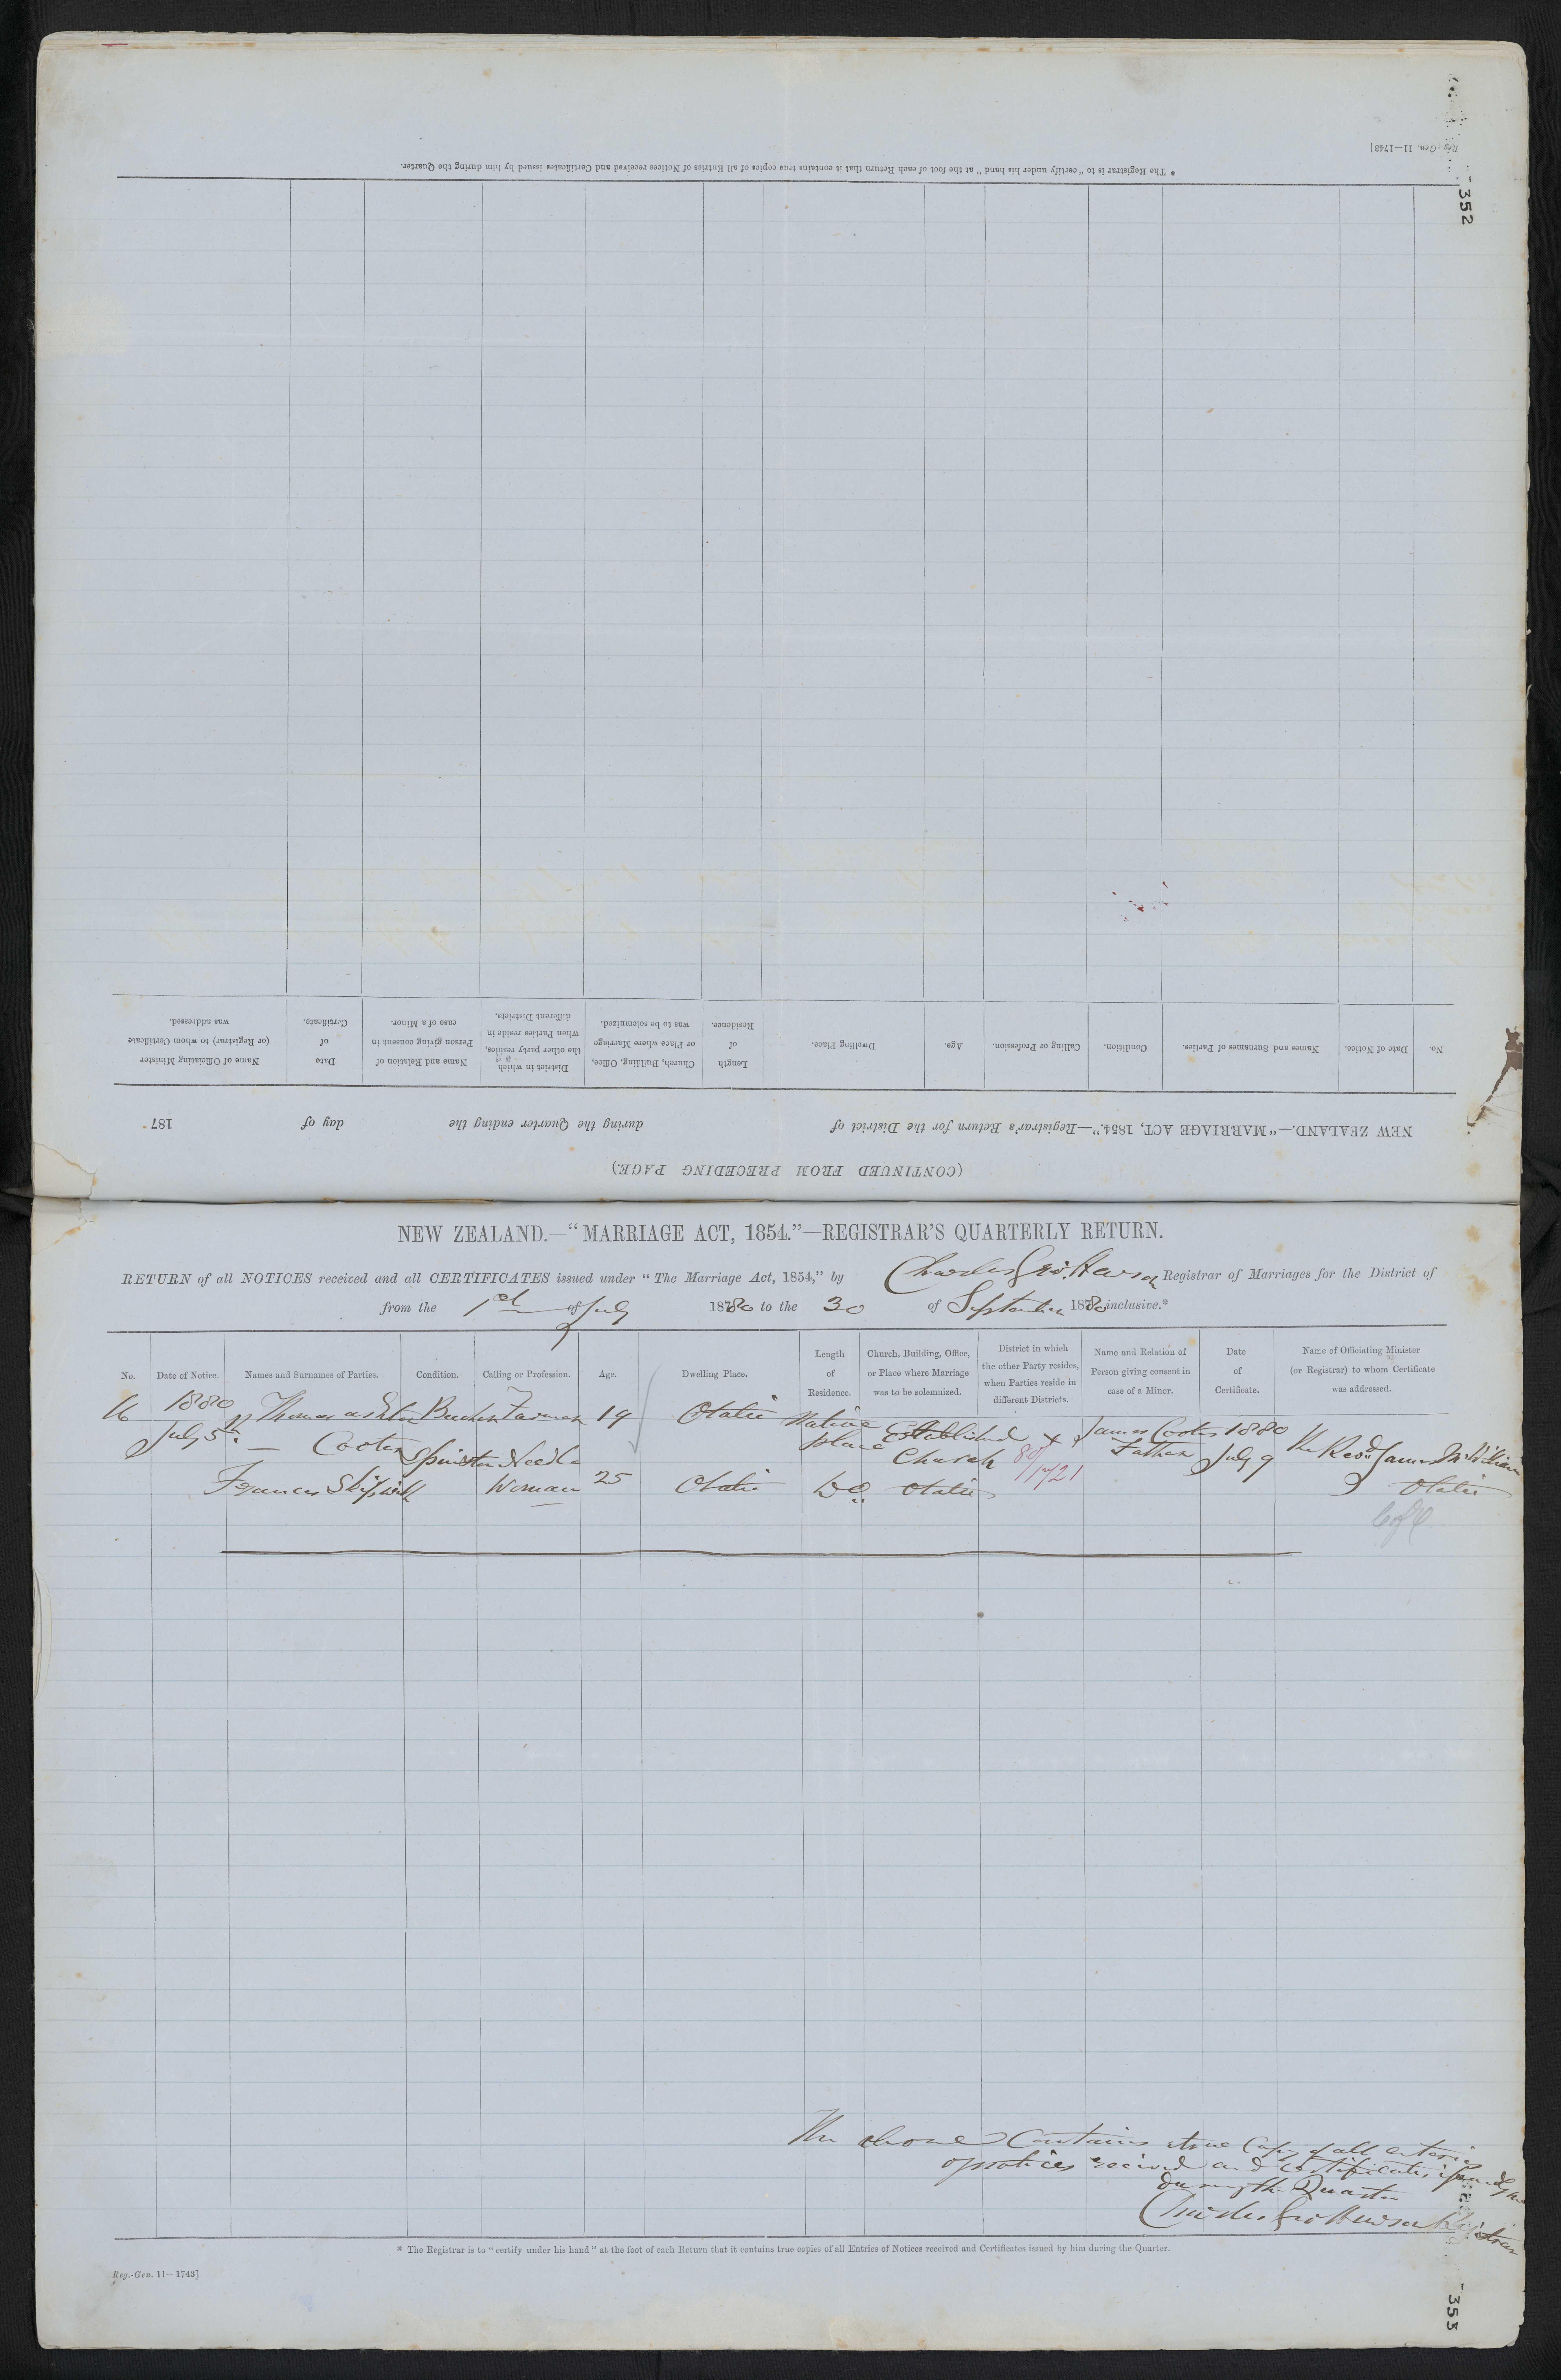 352
Reg.-Gen. 11—1743]
* The Registrar is to "certify under his hand" at the foot of each Return that it contains true copies of all Entries of Notices received and Certificates issued by him during the Quarter.
No.
Date of Notice.
Names and Surnames of Parties.
Condition.
Calling or Profession.
Age.
Dwelling Place.
Length of Residence.
Church, Building, Office, or Place where Marriage was to be solemnized.
District in which the other party resides, when Parties reside in different Districts.
Name and Relation of Person giving consent in case of a Minor.
Date of Certificate.
Name of Officiating Minister (or Registrar) to whom Certificate was addressed.
NEW ZEALAND.—"MARRIAGE ACT, 1854."—Registrar's Return for the District of during the Quarter ending the day of 187
(CONTINUED FROM PRECEDING PAGE.)
NEW ZEALAND.—"MARRIAGE ACT, 1854."—REGISTRAR'S QUARTERLY RETURN.
RETURN of all NOTICES received and all CERTIFICATES issued under "The Marriage Act, 1854," by Charles Geo. Hewson Registrar of Marriages for the District of
from the 1st of July 1880 to the 30 of September 1880 inclusive.*
No.
Date of Notice.
Names and Surnames of Parties.
Condition.
Calling or Profession.
Age.
Dwelling Place.
Length of Residence.
Church, Building, Office, or Place where Marriage was to be solemnized.
District in which the other Party resides, when Parties reside in different Districts.
Name and Relation of Person giving consent in case of a Minor.
Date of Certificate.
Name of Officiating Minister (or Registrar) to whom Certificate was addressed.
16 1880 Thomas ashton Farmer 19 Otaki Native Established x James Cootes 1880
July 5 — Cootes Spinster Needle place Church 80/1721 Father July 9 The Revd. James McWilliam
Frances Skipwith Woman 25 Otaki Do Otaki Otaki
C of E
The above Contains a true Copy of all enteries
of notices recieved and certificates issued by me
During the Quarter
Charles Geo Hewson Registrar
* The Registrar is to "certify under his hand" at the foot of each Return that it contains true copies of all Entries of Notices received and Certificates issued by him during the Quarter.
Reg.-Gen. 11—1743]
353